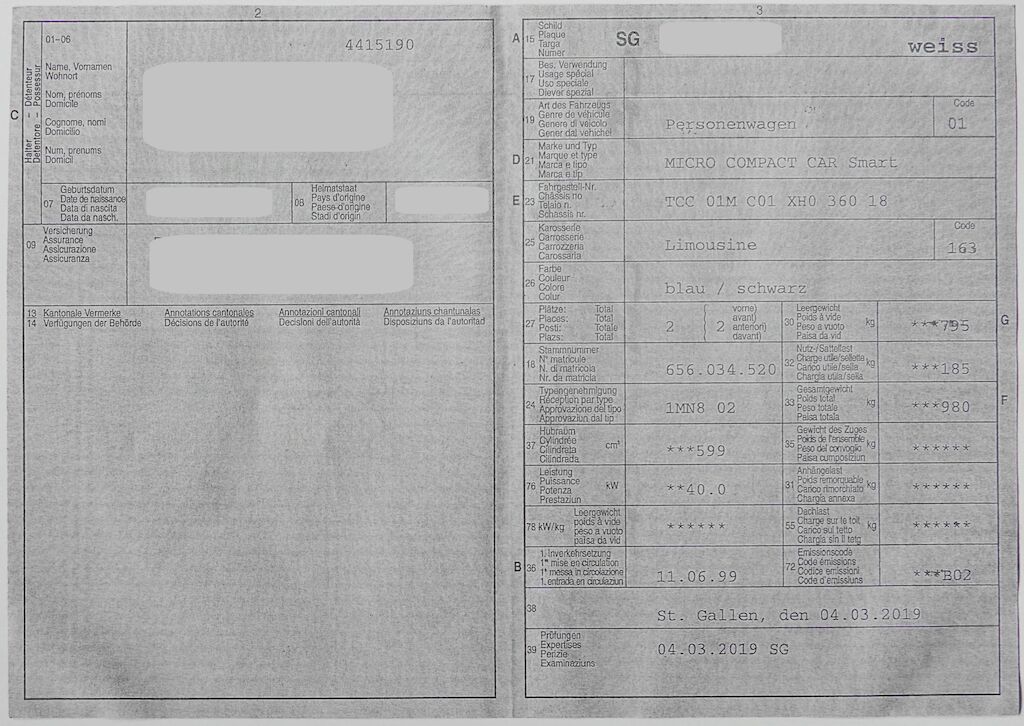 2
01-06
4415190
Halter – Détenteur
Detentore – Possessur
C
Name, Vornamen
Wohnort
Nom, prénoms
Domicile
Cognome, nomi
Domicilio
Num, prenums
Domicil
07
Geburtsdatum
Date de naissance
Data di nascita
Data da nasch.
08
Heimatstaat
Pays d'origine
Paese d'origine
Stadi d'origin
09
Versicherung
Assurance
Assicurazione
Assicuranza
13 Kantonale Vermerke Annotations cantonales Annotazioni cantonali Annotaziuns chantunalas
14 Verfügungen der Behörde Décisions de l'autorité Decisioni dell'autorità Disposiziuns da l'autoritad
3
A 15
Schild
Plaque
Targa
Numer
SG
weiss
17
Bes. Verwendung
Usage spécial
Uso speciale
Diever spezial
19
Art des Fahrzeugs
Genre de véhicule
Genere di veicolo
Gener dal vehichel
Personenwagen
Code
01
D 21
Marke und Typ
Marque et type
Marca e tipo
Marca e tip
MICRO COMPACT CAR Smart
E 23
Fahrgestell-Nr.
Châssis no
Telaio n.
Schassis nr.
TCC 01M C01 XH0 360 18
25
Karosserie
Carrosserie
Carrozzeria
Carossaria
Limousine
Code
163
26
Farbe
Couleur
Colore
Colur
blau / schwarz
27
Plätze: Total
Places: Total
Posti: Totale
Plazs: Total
2 ( 2
vorne)
avant)
anteriori)
davant)
30
Leergewicht
Poids à vide
Peso a vuoto
Paisa da vid
kg
***795
G
18
Stammnummer
N° matricule
N. di matricola
Nr. da matricla
656.034.520
32
Nutz-/Sattellast
Charge utile/sellette
Carico utile/sella
Chargia utila/sella
kg
***185
24
Typengenehmigung
Réception par type
Approvazione del tipo
Approvaziun dal tip
1MN8 02
33
Gesamtgewicht
Poids total
Peso totale
Paisa totala
kg
***980
F
37
Hubraum
Cylindrée
Cilindrata
Cilindrada
cm³
***599
35
Gewicht des Zuges
Poids de l'ensemble
Peso del convoglio
Paisa cumposiziun
kg
******
76
Leistung
Puissance
Potenza
Prestaziun
kW
**40.0
31
Anhängelast
Poids remorquable
Carico rimorchiato
Chargia annexa
kg
******
78 kW/kg
Leergewicht
poids à vide
peso a vuoto
paisa da vid
******
55
Dachlast
Charge sur le toit
Carico sul tetto
Chargia sin il tetg
kg
******
B 36
1. Inverkehrsetzung
1re mise en circulation
1a messa in circolazione
1. entrada en circulaziun
11.06.99
72
Emissionscode
Code émissions
Codice emissioni
Code d'emissiuns
***B02
38
St. Gallen, den 04.03.2019
39
Prüfungen
Expertises
Perizie
Examinaziuns
04.03.2019 SG